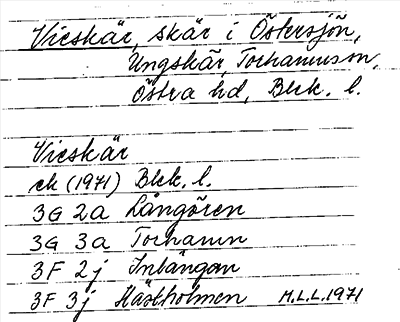 Vieskär, skär i Östersjön,
Ungskär, Torhamns sn,
Östra hd, Blek. l.
Vieskär
ek (1971) Blek. l.
3G 2a Långören
3G 3a Torhamn
3F 2j Inlängan
3F 3j Hästholmen M.L.L. 1971